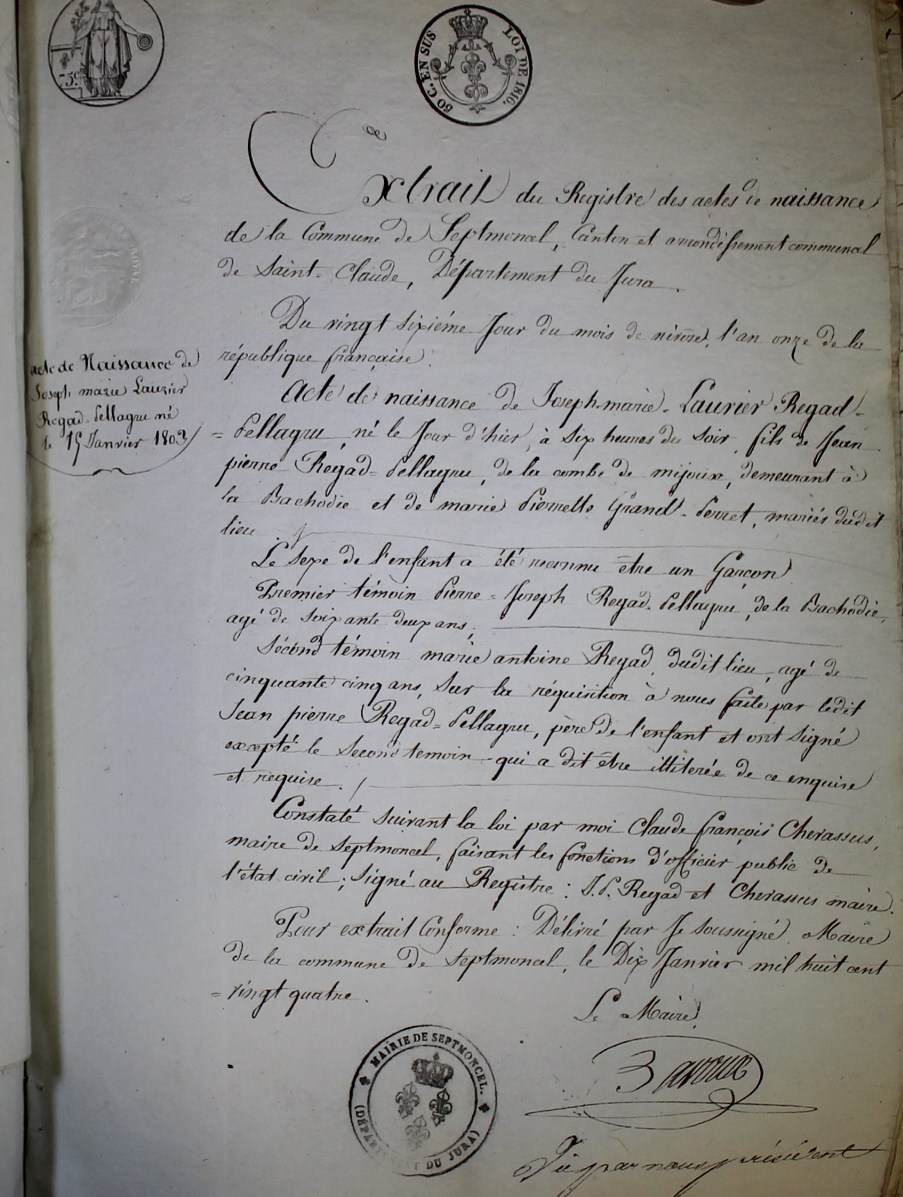 75c
50 C. EN SUS LOI DE 1816.
Extrait du Registre des actes de naissance
de la Commune de Septmoncel, Canton et arrondissement communal
de Saint-Claude, Département du Jura.
Du vingt sixiéme Jour du mois de nivose, l'an onze de la
république française.
acte de Naissance de
Joseph marie Lauzier
Regad-Pellagru né
le 15 Janvier 1803
Acte de naissance de Joseph-marie-Laurier Regad-
=Pellagru, né le Jour d'hier, à six heures du soir, fils de Jean
pierre Regad=Pellagru, de la combe de mijoux, demeurant à
la Bachodie et de marie Pierrette Grand-Perret, mariés dudit
lieu.
Le sexe de l'enfant a été reconnu etre un Garcon.
Premier témoin Pierre=Joseph Regad-Pellagru, de la Bachodie,
agé de soixante deux ans,
Second témoin marie antoine Regad, dudit lieu, agé de
cinquante cinq ans, Sur la réquisition à nous faite par ledit
Jean pierre Regad=Pellagru, père de l'enfant et ont signé
excepté le Second temoin qui a dit etre illiterée de ce enquise
et requise.
Constaté suivant la loi par moi Claude françois Chevassus,
maire de Septmoncel, faisant les fonctions d'officier public de
l'état civil; Signé au Registre: J.P. Regad et Chevassus maire.
Pour extrait Conforme: Délivré par Je Soussigné, Maire
de la commune de Septmoncel, le Dix Janvier mil huit cent
=vingt quatre.
Le Maire
Bavoux
MAIRIE DE SEPTMONCEL.
(DÉPARTEMENT DU JURA)
Vu par nous président